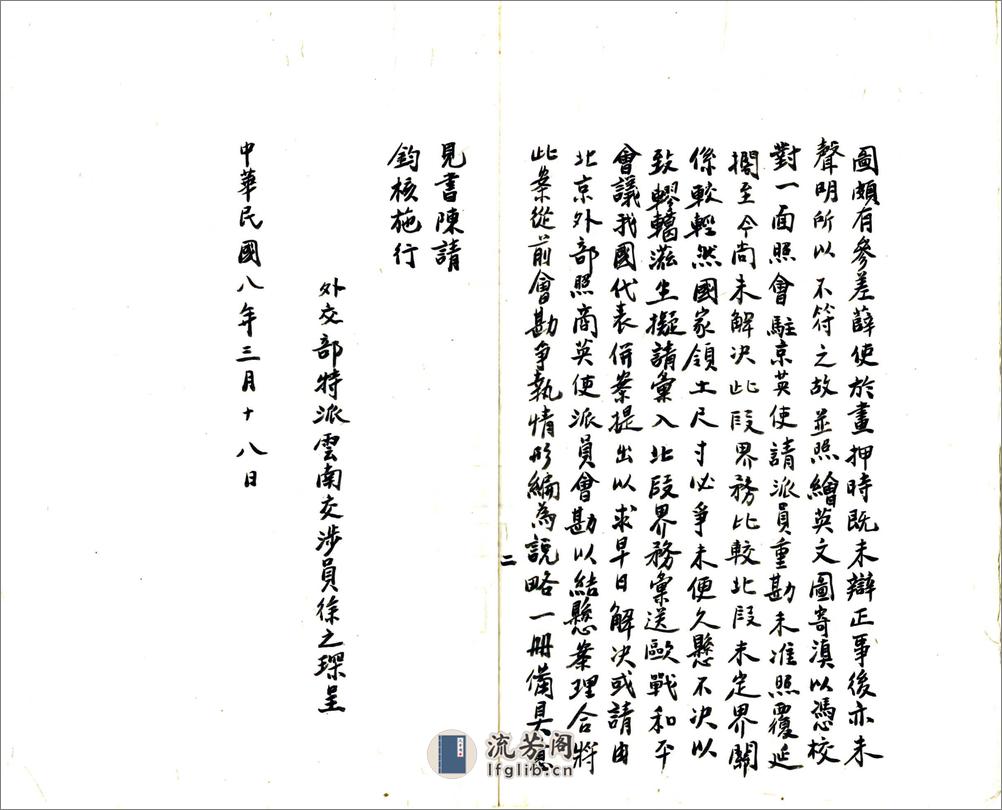 圖頗有參差薛使於畫押時既未辯正事後亦未
聲明所以不符之故並照繪英文圖寄滇以憑校
對一面照會駐京英使請派員重勘未准照覆延
擱至今尚未解決此段界務比較北段未定界關
係較輕然國家領土尺寸必爭未便久懸不決以
致轇轕滋生擬請彙入北段界務彙送歐戰和平
會議我國代表併案提出以求早日解決或請由
北京外部照商英使派員會勘以結懸案理合將
此案從前會勘爭執情形編為說略一冊備具意
二
見書陳請
鈞核施行
外交部特派雲南交涉員徐之琛呈
中華民國八年三月十八日
流芳阁
lfglib.cn